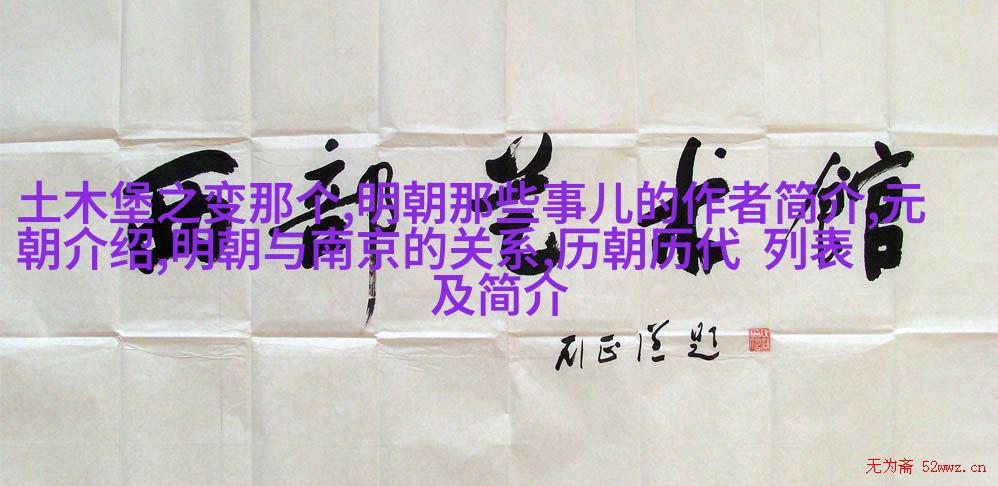 土木堡之变那个,明朝那些事儿的作者简介,元
朝介绍,明朝与南京的关系,历朝历代 列表
及简介
西部艺术馆
正 题
无为斋 52wwz.cn